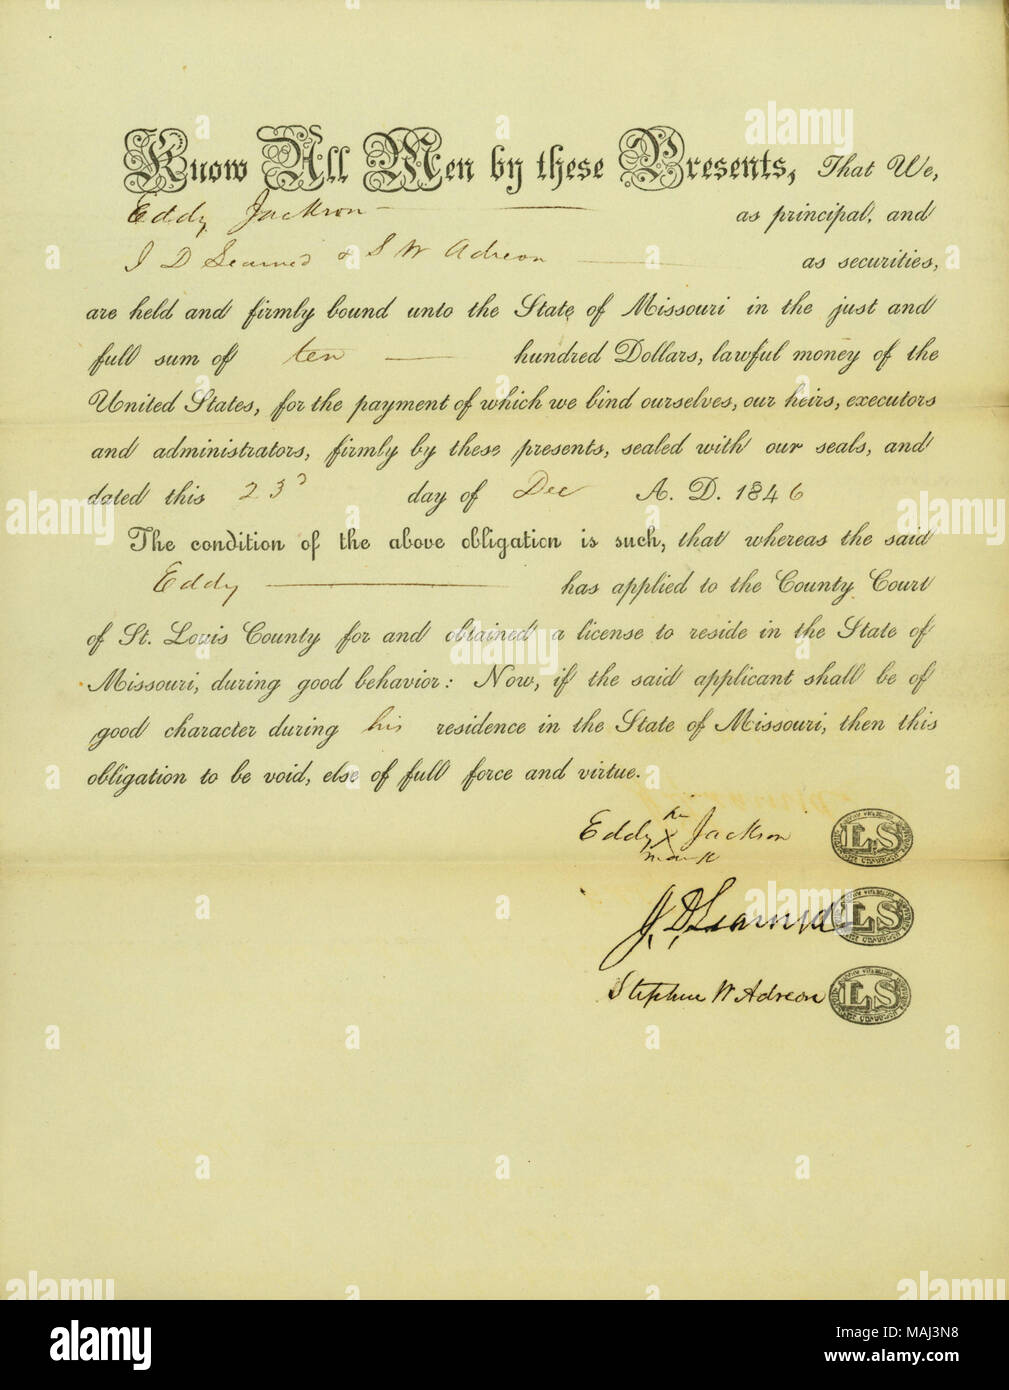 Know All Men by these Presents, That We,
Eddy Jackson as principal, and
J D Learned & S W Adreon as securities,
are held and firmly bound unto the State of Missouri in the just and
full sum of ten hundred Dollars, lawful money of the
United States, for the payment of which we bind ourselves, our heirs, executors
and administrators, firmly by these presents, sealed with our seals, and
dated this 23d day of Dec A. D. 1846
The condition of the above obligation is such, that whereas the said
Eddy has applied to the County Court
of St. Louis County for and obtained a license to reside in the State of
Missouri, during good behavior: Now, if the said applicant shall be of
good character during his residence in the State of Missouri, then this
obligation to be void, else of full force and virtue.
his
Eddy X Jackson LS
mark
J. D. Learned LS
Stephen W Adreon LS
alamy
alamy
Image ID: MAJ3N8
www.alamy.com